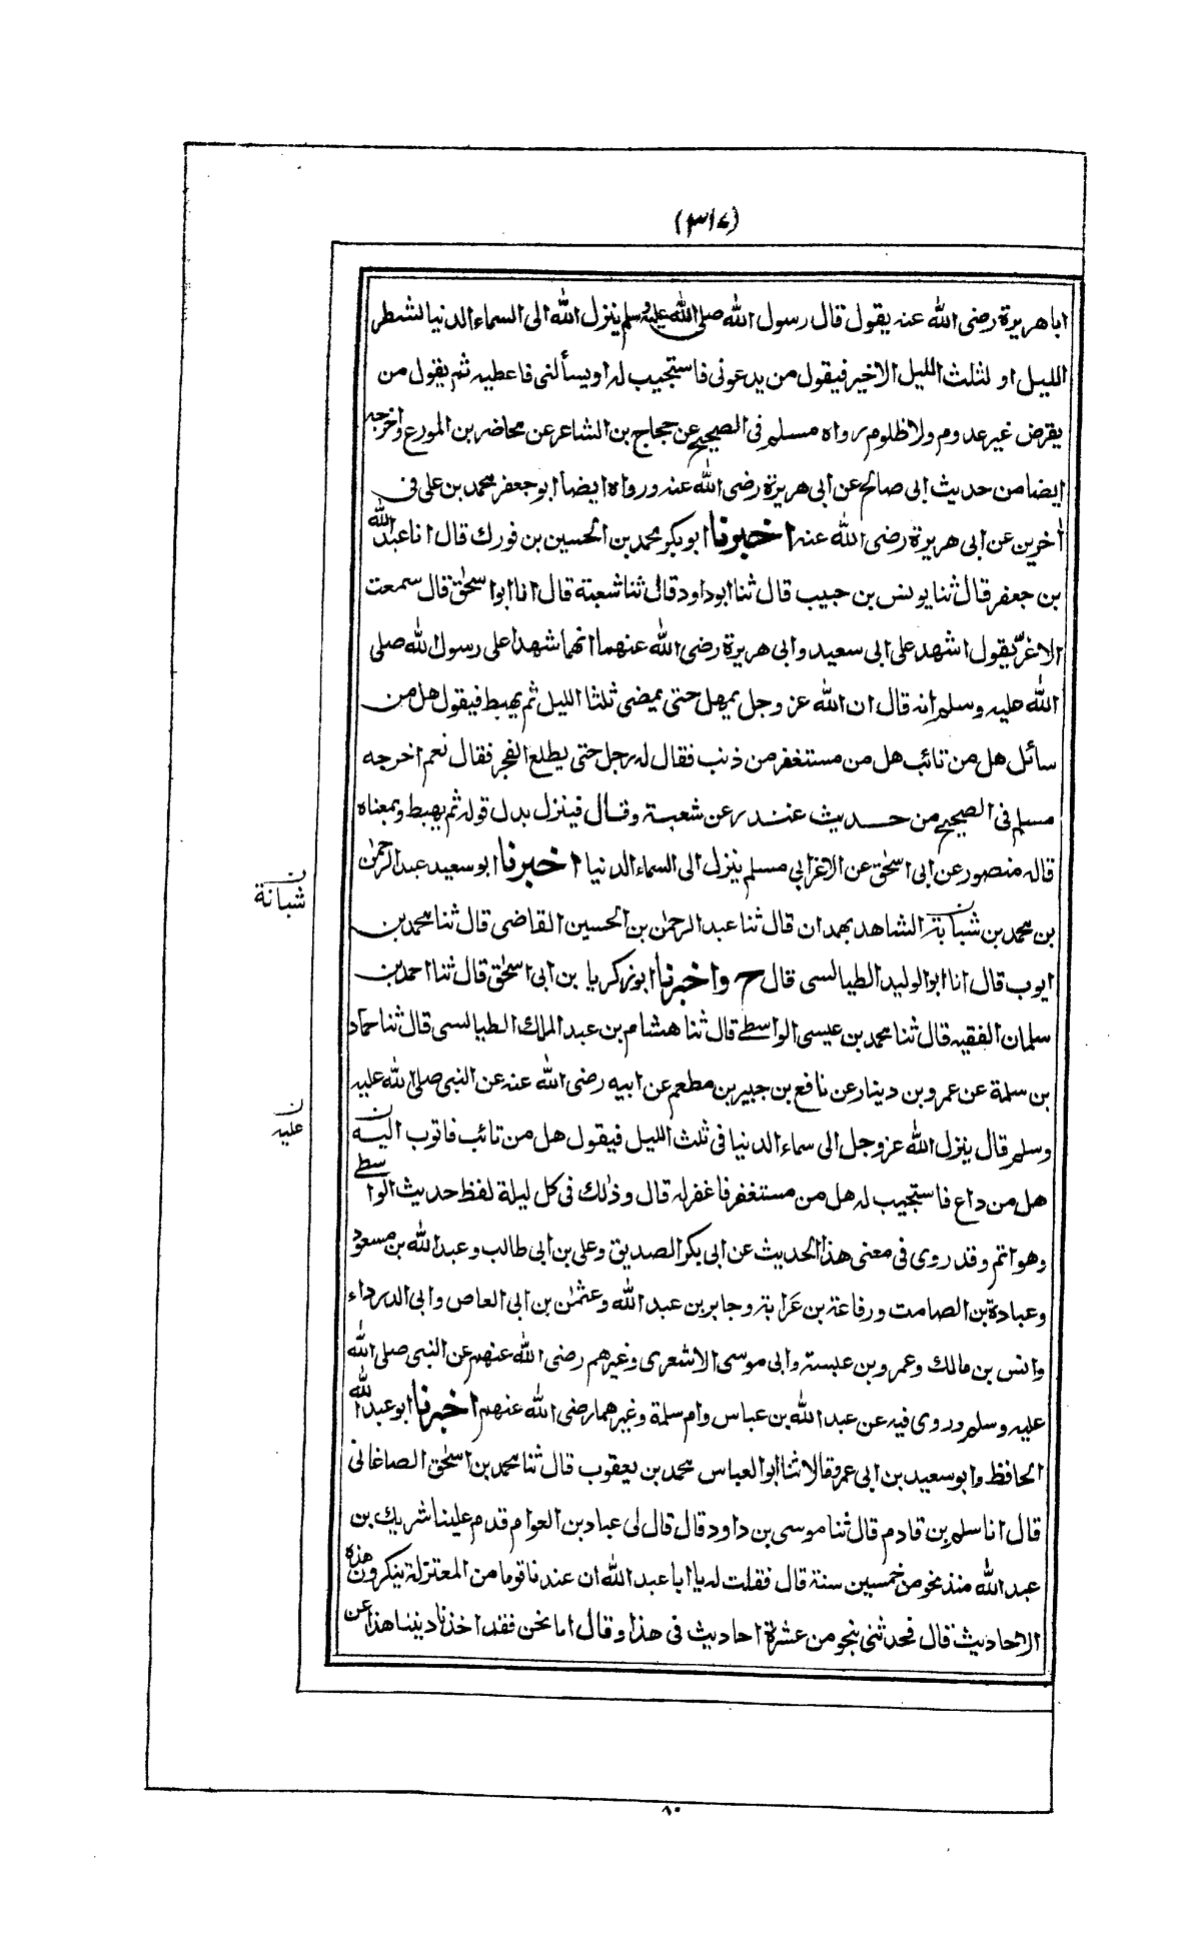 (٣١٧)
ابا هريرة رضى الله عنه يقول قال رسول الله صلى الله عليه وسلم ينزل الله الى السماء الدنيا لشطر
الليل او لثلث الليل الاخير فيقول من يدعونى فاستجيب له او يسألنى فاعطيه ثم يقول من
يقرض غير عدوم ولا ظلوم رواه مسلم فى الصحيح عن حجاج بن الشاعر عن محاضر بن المورع واخرجه
ايضا من حديث ابى صالح عن ابى هريرة رضى الله عنه ورواه ايضا ابو جعفر محمد بن على فى
اٰخرين عن ابى هريرة رضى الله عنه اخبرنا ابو بكر محمد بن الحسين بن فورك قال انا عبد الله
بن جعفر قال ثنا يونس بن حبيب قال ثنا ابو داود قال ثنا شعبة قال انا ابو اسحٰق قال سمعت
الاغرّ يقول اشهد على ابى سعيد وابى هريرة رضى الله عنهما انهما شهدا على رسول الله صلى
الله عليه وسلم انه قال ان الله عز وجل يمهل حتى يمضى ثلثا الليل ثم يهبط فيقول هل من
سائل هل من تائب هل من مستغفر من ذنب فقال له رجل حتى يطلع الفجر فقال نعم اخرجه
مسلم فى الصحيح من حديث غندر عن شعبة وقال فينزل بدل قوله ثم يهبط وبمعناه
قاله منصور عن ابى اسحٰق عن الاغر ابي مسلم ينزل الى السماء الدنيا اخبرنا ابو سعيد عبد الرحمٰن
شبانة
بن محمد بن شبابة الشاهد بهمدان قال ثنا عبد الرحمٰن بن الحسين القاضى قال ثنا محمد بن
ايوب قال انا ابو الوليد الطيالسى قال ح واخبرنا ابو زكريا بن ابى اسحٰق قال ثنا احمد بن
سلمان الفقيه قال ثنا محمد بن عيسى الواسطے قال ثنا هشام بن عبد الملك الطيالسى قال ثنا حماد
بن سلمة عن عمرو بن دينار عن نافع بن جبير بن مطعم عن ابيه رضى الله عنه عن النبى صلى الله عليه
عليه
وسلم قال ينزل الله عز وجل الى سماء الدنيا فى ثلث الليل فيقول هل من تائب فاتوب اليه
هل من داع فاستجيب له هل من مستغفر فاغفر له قال وذٰلك فى كل ليلة لفظ حديث الواسطے
وهو اتم وقد روى فى معنى هذا الحديث عن ابى بكر الصديق وعلى بن ابى طالب وعبد الله بن مسعود
وعبادة بن الصامت ورفاعة بن عَرابة وجابر بن عبد الله وعثمٰن بن ابى العاص وابى الدرداء
وانس بن مالك وعمرو بن عبسة وابى موسى الاشعرى وغيرهم رضى الله عنهم عن النبى صلى الله
عليه وسلم وروى فيه عن عبد الله بن عباس وام سلمة وغيرهما رضى الله عنهم اخبرنا ابو عبد الله
الحافظ وابو سعيد بن ابى عمرو قالا ثنا ابو العباس محمد بن يعقوب قال ثنا محمد بن اسحٰق الصاغانى
قال انا سلم بن قادم قال ثنا موسى بن داود قال قال لى عباد بن العوام قدم علينا شريك بن
عبد الله منذ نحو من خمسين سنة قال فقلت له يا ابا عبد الله ان عندنا قوما من المعتزلة ينكرون هذه
الاحاديث قال فحدثنى بنحو من عشرة احاديث فى هذا وقال اما نحن فقد اخذنا ديننا هذا عن
٨٠